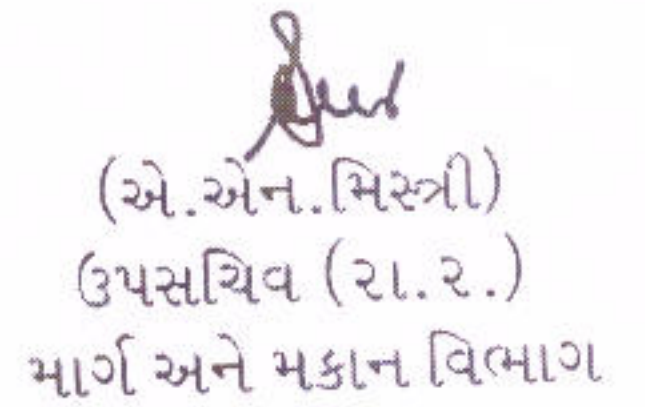 (એ.એન.મિસ્ત્રી)
ઉપસચિવ (રા.ર.)
માર્ગ અને મકાન વિભાગ